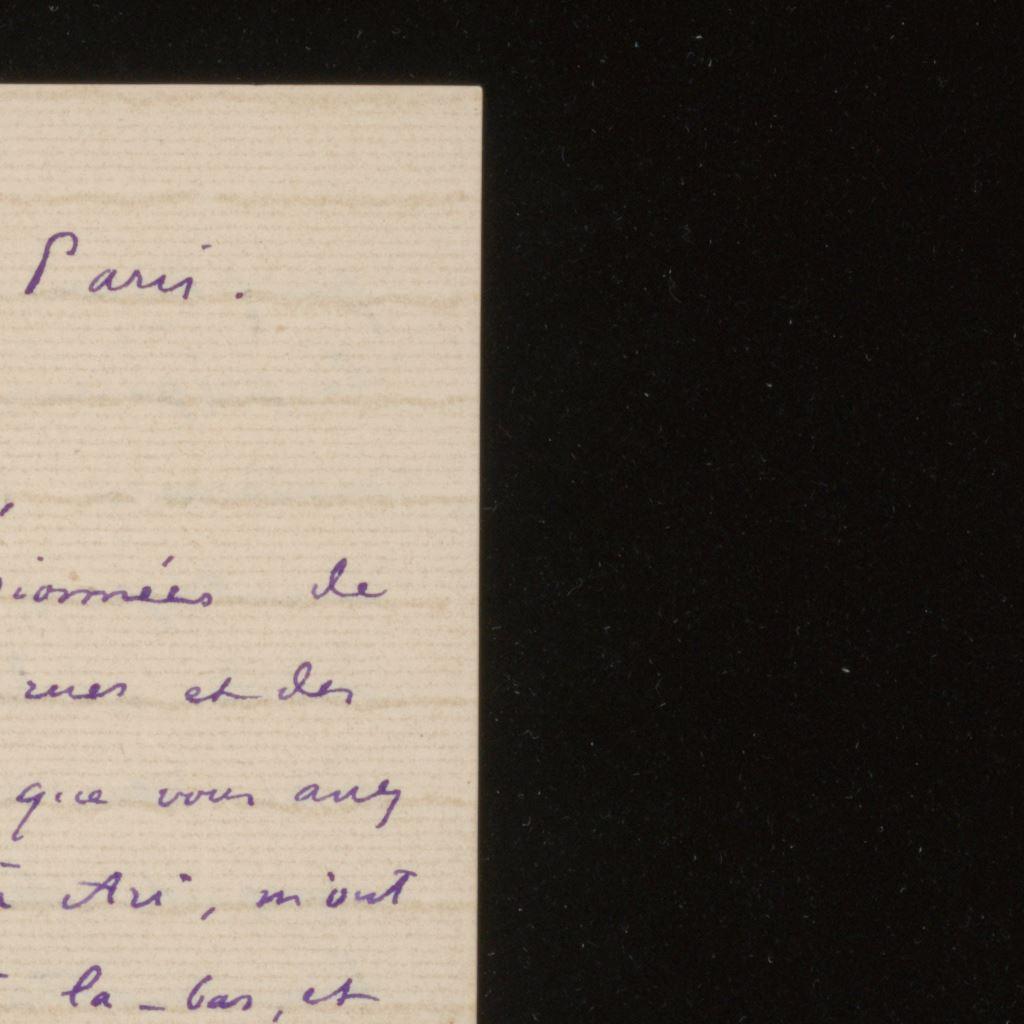 Paris.
sionnées de
rues et des
que vous avez
à Ari, m'ont
la-bas, et